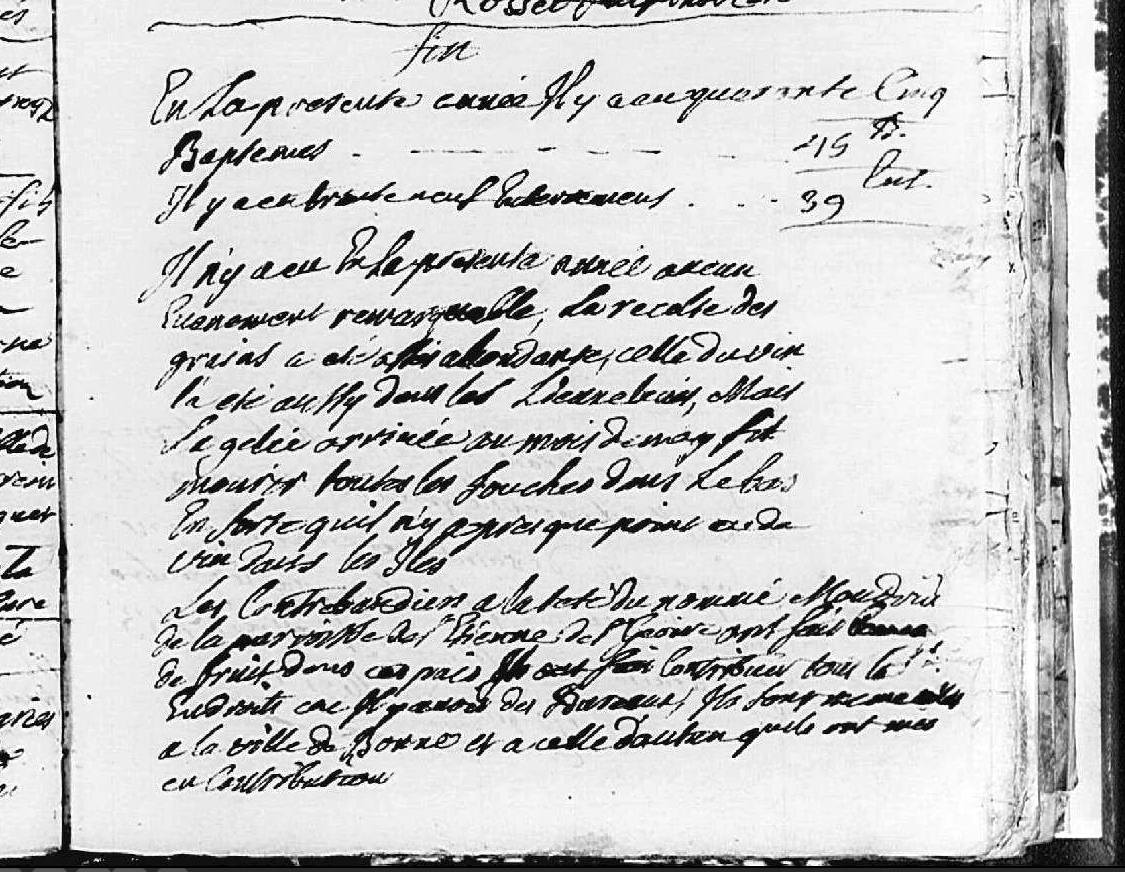 fin
En La presente année Il y a eu quarante Cinq
Baptemes . - - - - - 45 B.
Il y a eu trente neuf Enterremens . . . 39 Ent.
Il n'y a eu En La presente année aucun
Evenement remarquable, La recolte des
grains a eté assés abondante, celle du vin
l'a eté aussy dans les, Mais
La gelée arrivée au mois de may fit
mourir toutes les souches dans Le bas
En sorte quil n'y a presque point eu de
vin dans les Iles
Les Contrebandiers a la tete du nommé Mandrin
de la parroisse de St Etienne de St Geoirs ont fait
de bruit dans ces païs Ils ont fait Contribuer tous les
Endroits ou Il y avoit des Bureaux, Ils sont meme allés
a la ville de Bonne et a celle d'autun quils ont mis
en Contribution